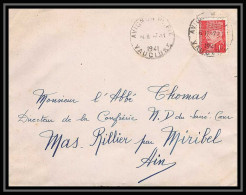 1941
VAUCLUSE
Monsieur l'Abbé Thomas
Directeur de la Confrérie N.D du Sacré Cœur
Mas-Rillier par Miribel
Ain